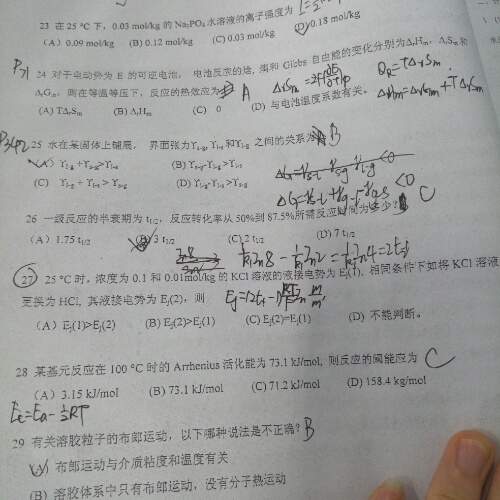 23 在 25 °C 下，0.03 mol/kg 的 Na₃PO₄水溶液的离子强度为
(A) 0.09 mol/kg (B) 0.12 mol/kg (C) 0.03 mol/kg (D) 0.18 mol/kg
P71
24 对于电动势为 E 的可逆电池，电池反应的焓，熵和 Gibbs 自由能的变化分别为ΔrHm，ΔrSm和
ΔrGm，则在等温等压下，反应的热效应为 A QR=TΔrSm
(A) TΔrSm (B) ΔrHm (C) 0 (D) 与电池温度系数有关。 ΔrHm=ΔrGm+TΔrSm
25 水在某固体上铺展，界面张力为γl-g, γl-s和γs-g 之间的关系为 B
(A) γl-g +γs-g>γl-s (B) γs-g-γl-g >γl-s
(C) γs-g + γl-s > γl-g (D) γl-g-γl-s >γs-g
ΔG=γs-l + γl-g - γg-s <0
26 一级反应的半衰期为 t1/2，反应转化率从 50%到 87.5%所需反应时间为多少? C
(A) 1.75 t1/2 (B) 3 t1/2 (C) 2 t1/2 (D) 7 t1/2
27 25 °C 时，浓度为 0.1 和 0.01mol/kg 的 KCl 溶液的液接电势为 Ej(1), 相同条件下如将 KCl 溶液
更换为 HCl, 其液接电势为 Ej(2)，则
(A) Ej(1)>Ej(2) (B) Ej(2)>Ej(1) (C) Ej(2)=Ej(1) (D) 不能判断。
28 某基元反应在 100 °C 时的 Arrhenius 活化能为 73.1 kJ/mol, 则反应的阈能应为 C
(A) 3.15 kJ/mol (B) 73.1 kJ/mol (C) 71.2 kJ/mol (D) 158.4 kg/mol
Ec=Ea-½RT
29 有关溶胶粒子的布郎运动，以下哪种说法是不正确? B
(A) 布郎运动与介质粘度和温度有关
(B) 溶胶体系中只有布郎运动，没有分子热运动